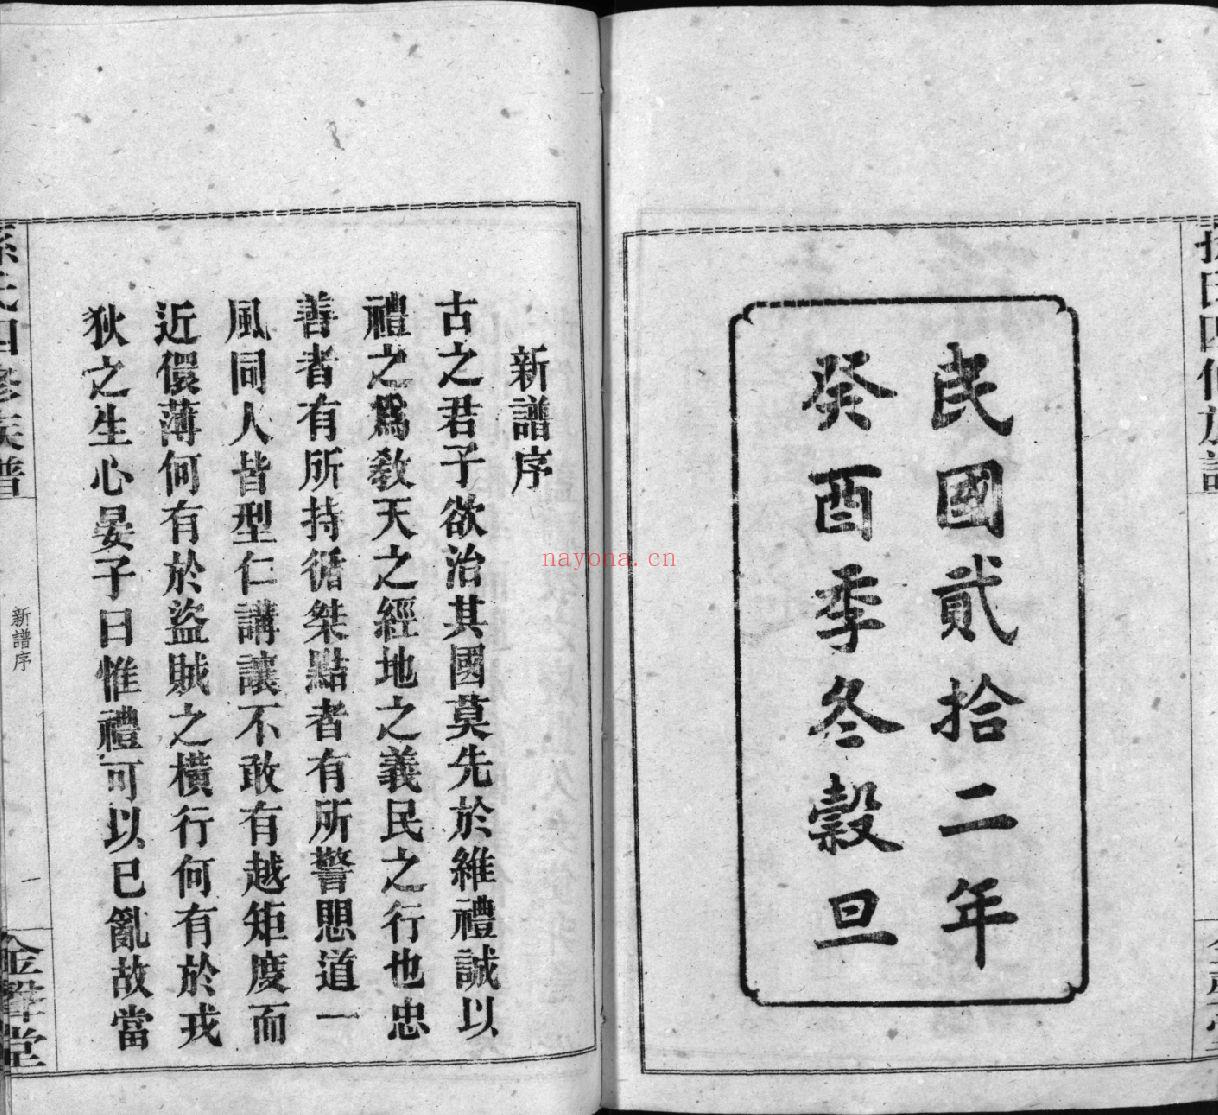 民國貳拾二年
癸酉季冬穀旦
新譜序
古之君子欲治其國莫先於維禮誠以
禮之爲敎天之經地之義民之行也忠
善者有所持循桀點者有所警思道一
風同人皆型仁講讓不敢有越矩度而
近儇薄何有於盜賊之橫行何有於戎
狄之生心晏子曰惟禮可以已亂故當
孫氏四修族譜
新譜序
一
金聲堂
nayona.cn